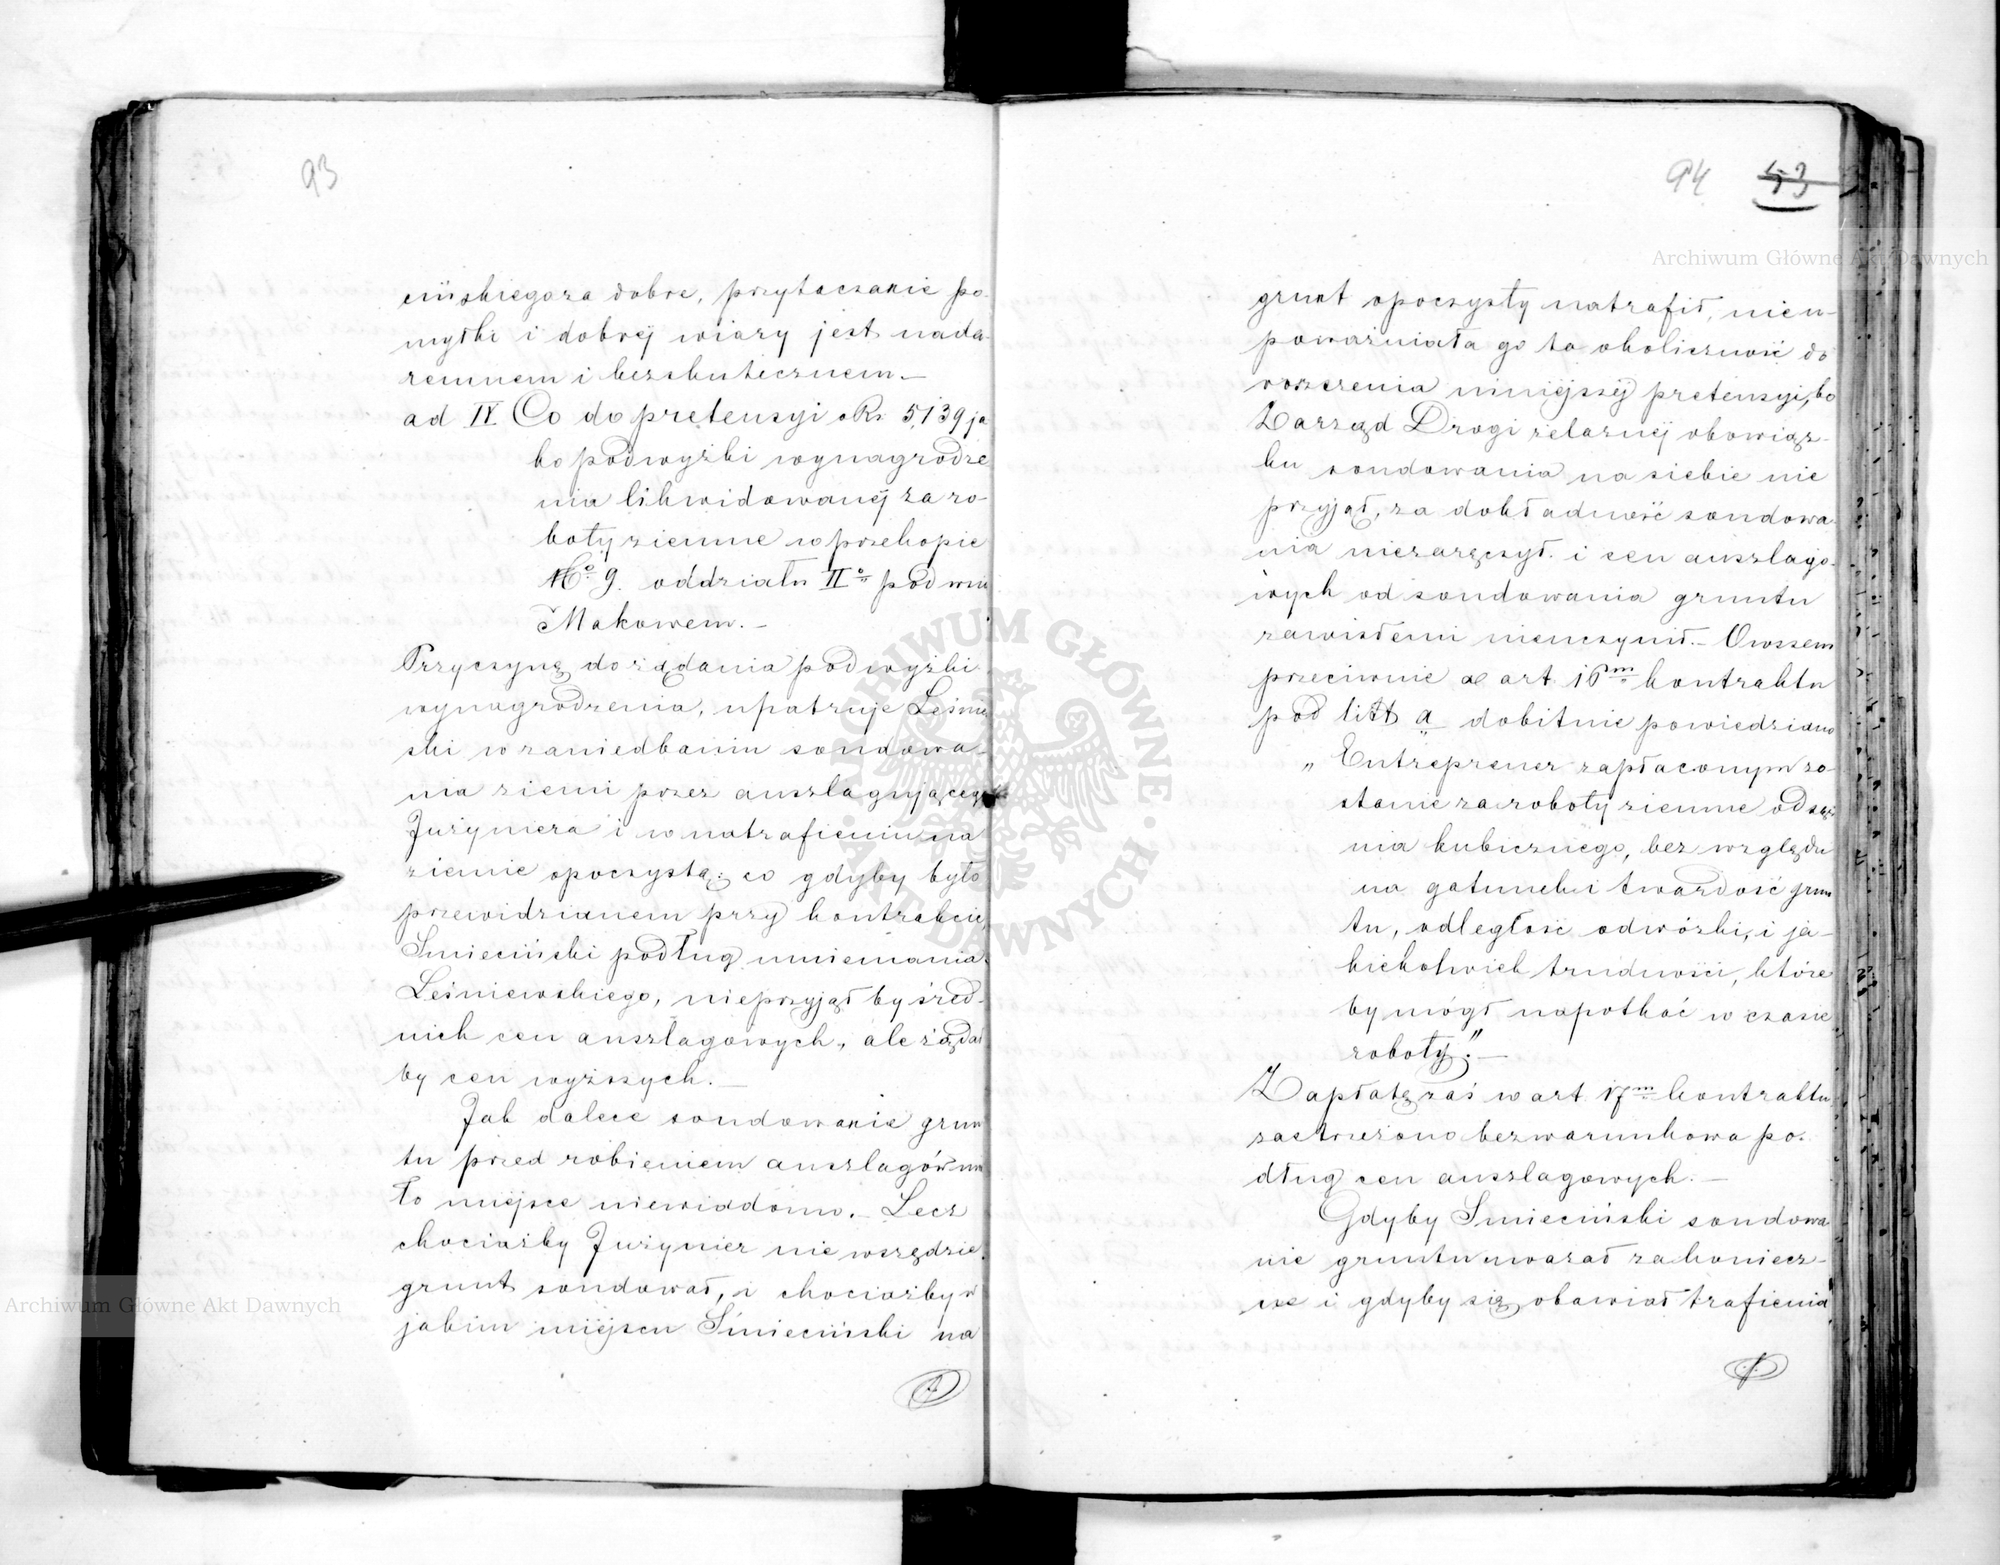 93
cińskiego za dobre, przytaczanie po-
myłki i dobrej wiary jest nada-
remnem i bezskutecznem.—
ad IV Co do pretensyi o Rs. 5,139 ja
ko podwyżki wynagrodze
nia likwidowanej za ro-
boty ziemne w przekopie
No 9. oddziału IIo pod wsią
Makowem.—
Przyczynę do żądania podwyżki
wynagrodzenia, upatruje Leśniew
ski w zaniedbaniu sondowa-
nia ziemi przez anszlagującego
Inżyniera i w natrafieniu na
ziemie opoczystą; co gdyby było
przewidzianem przy kontrakcie,
Śmieciński podług mniemania
Leśniewskiego, nieprzyjął by śred-
nich cen anszlagowych, ale żądał
by cen wyższych.—
Jak dalece sondowanie grun
tu przed robieniem anszlagów mia
ło miejsce niewiadomo.— Lecz
chociażby Inżynier nie wszędzie
grunt sondował, i chociażby w
jakim miejscu Śmieciński na
94 43
grunt opoczysty natrafił, nieu-
poważniała go ta okoliczność do
roszczenia niniejszej pretensyi, bo
Zarząd Drogi żelaznej obowiąz-
ku sondowania na siebie nie
przyjął, za dokładność sondowa-
nia niezaręczył i cen anszlago-
wych od sondowania gruntu
zawisłemi nieuczynił.— Owszem
przeciwnie w art. 16m kontraktu
pod litt a dobitnie powiedziano
„Entreprener zapłaconym zo-
stanie za roboty ziemne od sąż
nia kubicznego, bez względu
na gatunek i twardość grun
tu, odległość odwózki, i ja-
kichkolwiek trudności, które
by mógł napotkać w czasie
roboty."—
Zapłatę zaś w art. 17m kontraktu
zastrzeżono bezwarunkowa po-
dług cen anszlagowych.—
Gdyby Śmieciński sondowa
nie gruntu uważał za koniecz-
ne i gdyby się obawiał trafienia
Archiwum Główne Akt Dawnych
Archiwum Główne Akt Dawnych
ARCHIWUM GŁÓWNE AKT DAWNYCH